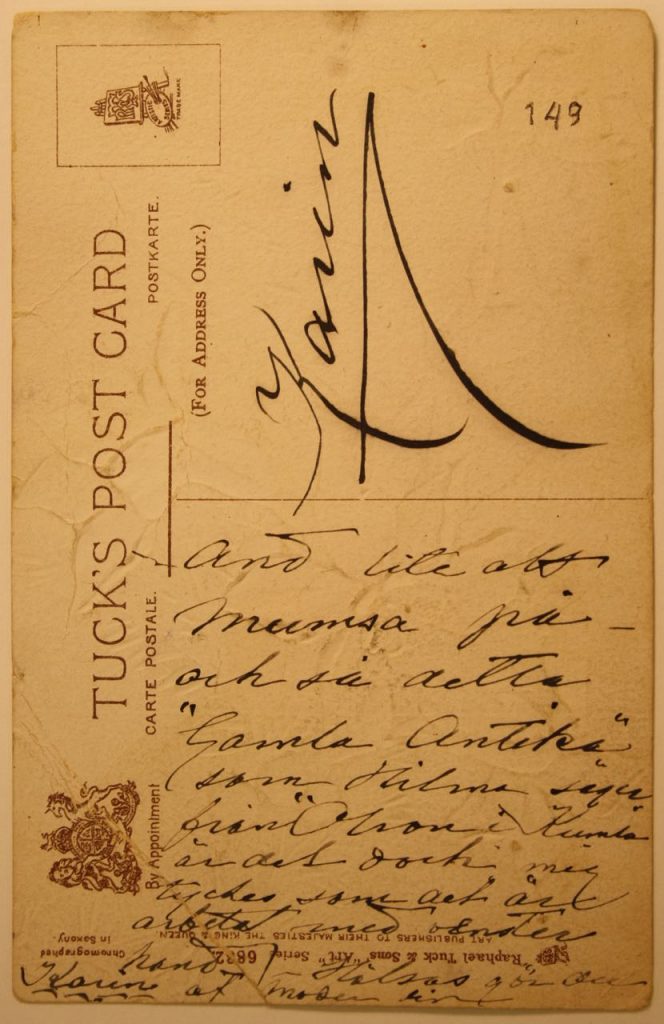 149
TUCK'S POST CARD
CARTE POSTALE.
POSTKARTE.
(FOR ADDRESS ONLY.)
By Appointment
TRADE MARK
Karin
And lite att
mumsa på –
och så detta
"Gamla Antika"
som Hilma säger
från i Kumla
är det dock mig
tyckes som det är
arbetat med venster
hand Hälsas gör du
Karin af moder din
Raphael Tuck & Sons' "Art" Series 6832
ART PUBLISHERS TO THEIR MAJESTIES THE KING & QUEEN
Chromographed
in Saxony